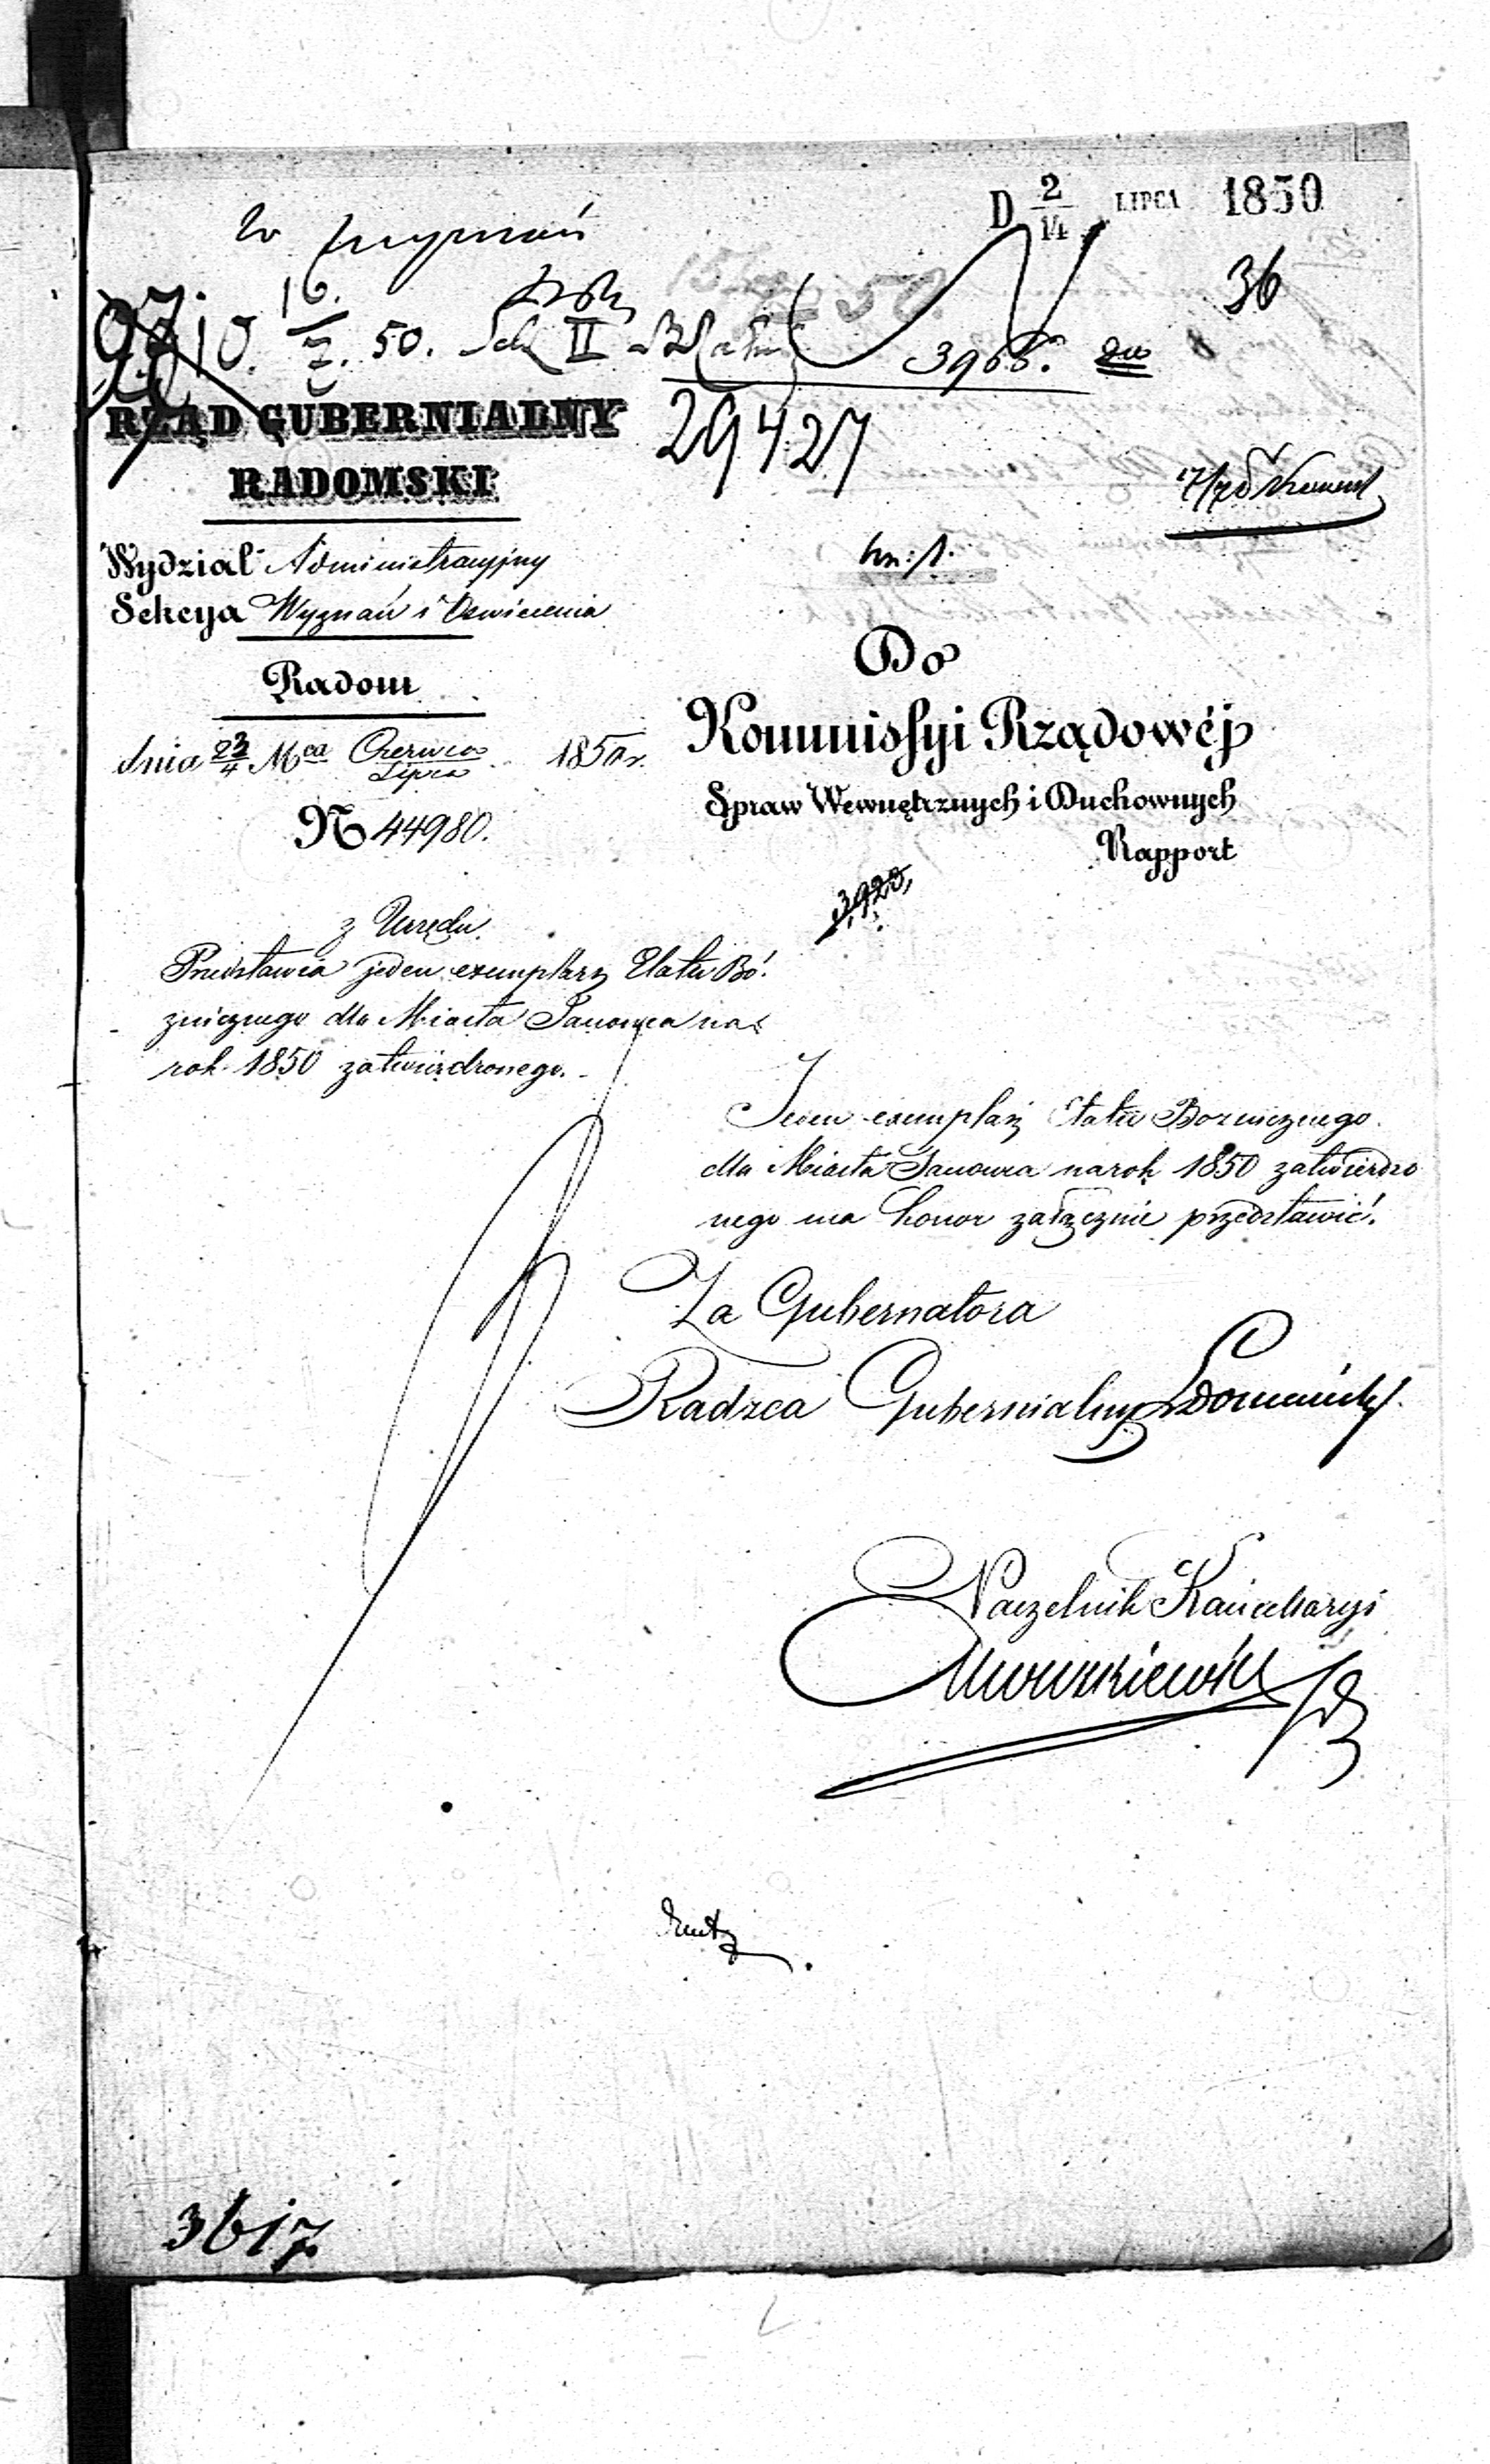 D 2/14 LIPCA 1850
36
50. II
3966.
29427
RZĄD GUBERNIALNY
RADOMSKI
Wydział Administracyjny
Sekcya Wyznań i Oświecenia
Radom
dnia 23/4 Mca Czerwca/Lipca 1850 r.
N 44980.
Do
Kommissyi Rządowéj
Spraw Wewnętrznych i Duchownych
Rapport
3920,
z Urzędu.
Przedstawia jeden exemplarz Etatu Bó
zniczego dla Miasta Janowca na
rok 1850 zatwierdzonego.
Jeden exemplarz Etatu Bozniczego
dla Miasta Janowca na rok 1850 zatwierdzo
nego ma honor załącznie przedstawić.
Za Gubernatora
Radzca Gubernialny
Naczelnik Kancellaryi
3617